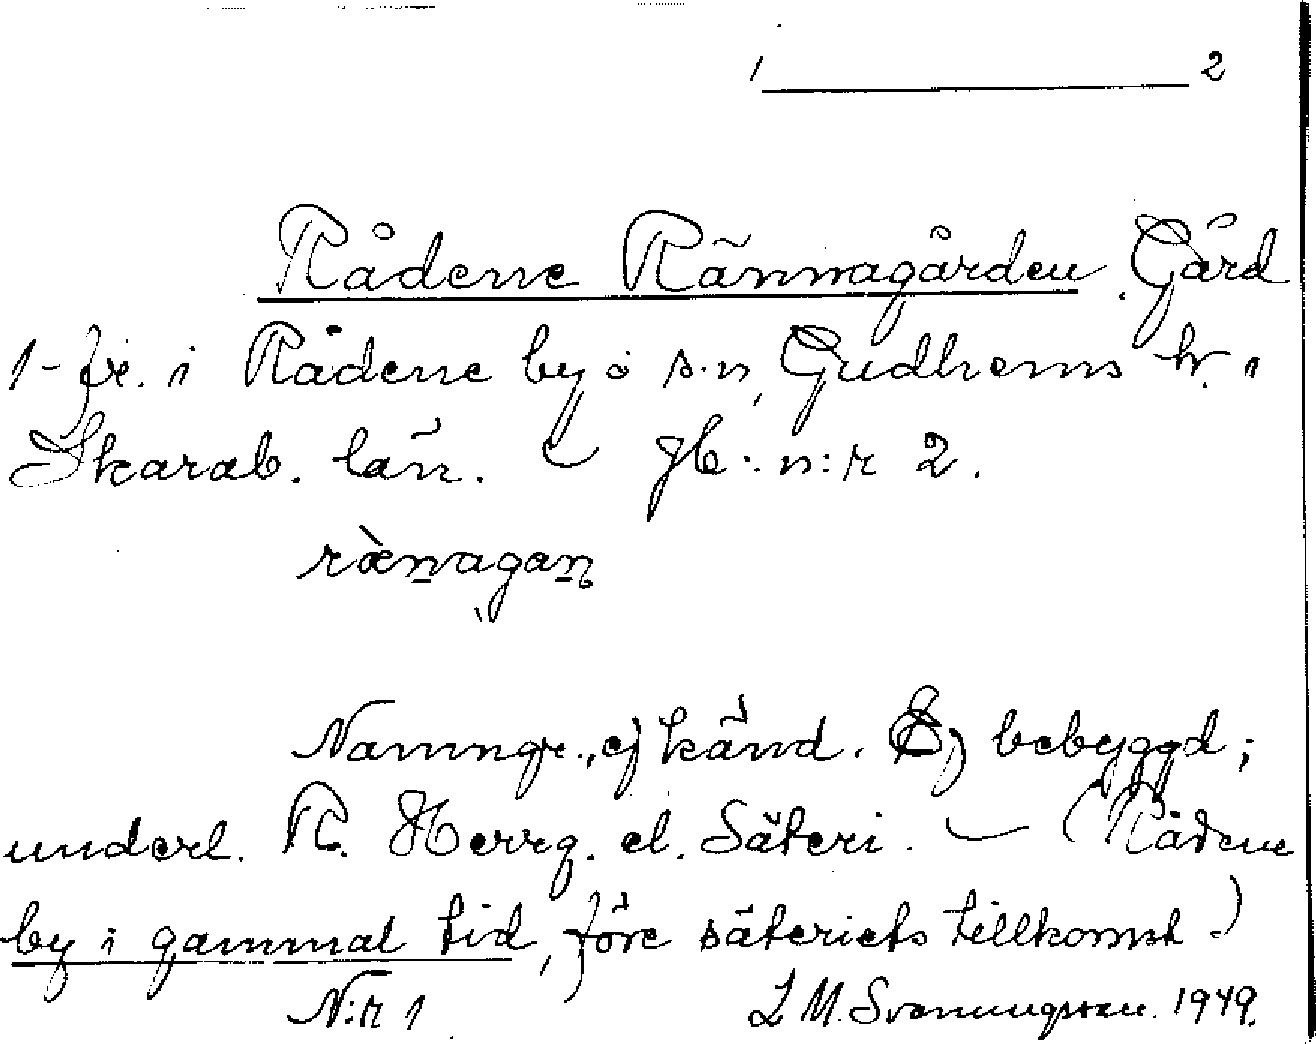 1 2
Rådene Rännagården. Gård
1-fr. i Rådene by o s.n, Gudhems hr. i
Skarab. län. — gb: n:r 2.
rænagan
Namngr., ej känd. Ej bebyggd;
underl. R. Herrg. el. Säteri. — (Rådene
by i gammal tid, före säteriets tillkomst.)
N:r 1 L M. Svanungsson. 1949.